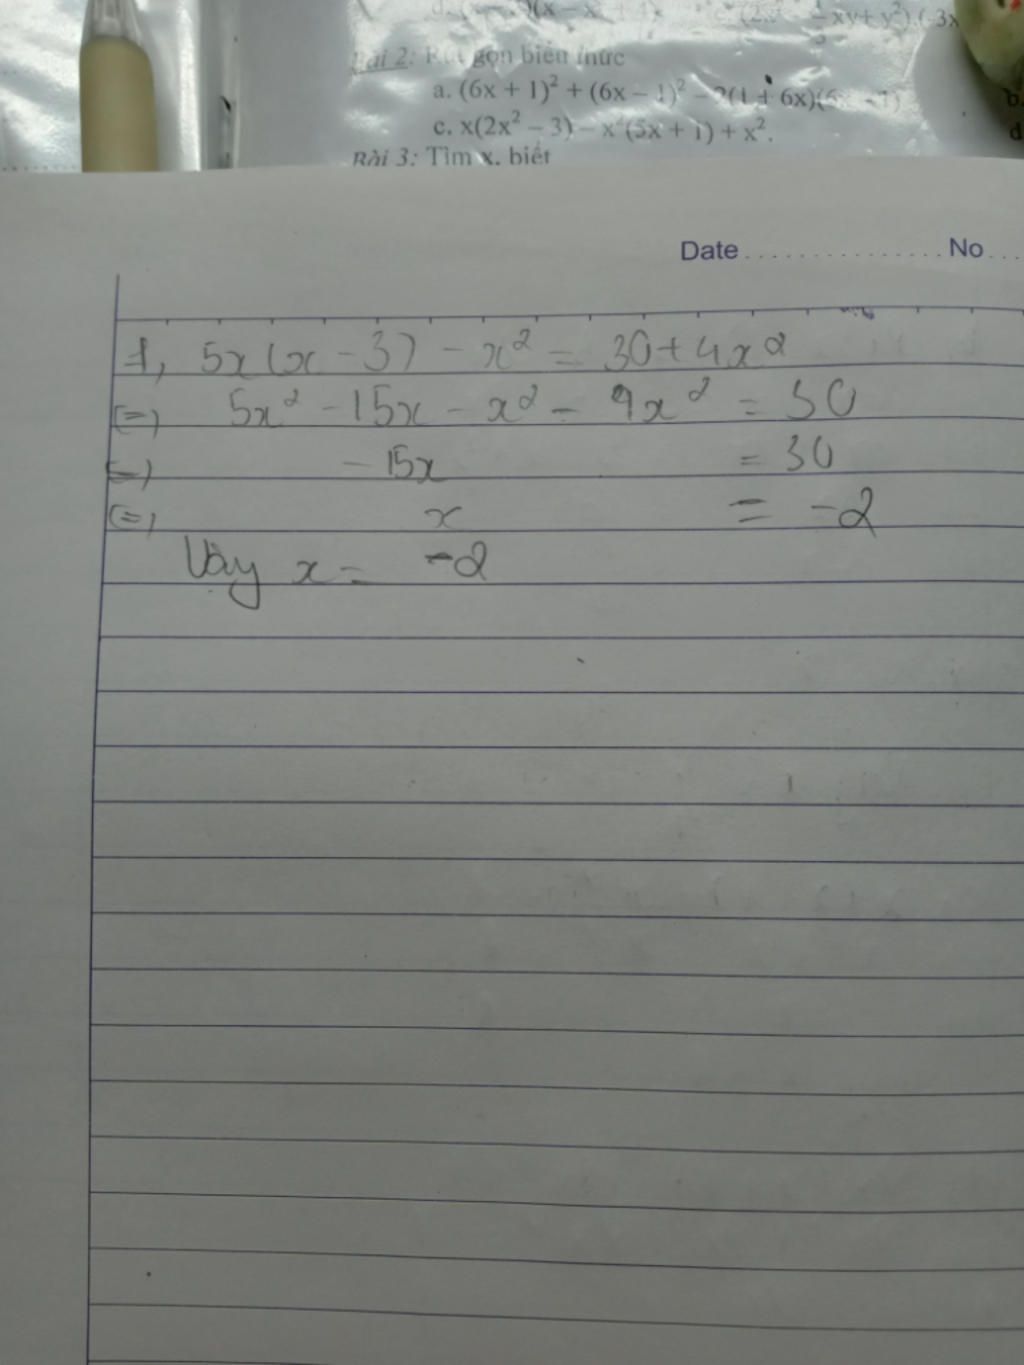 Bài 2: Rút gọn biểu thức
a. (6x + 1)² + (6x – 1)² – 2(1 + 6x)(6x – 1)
c. x(2x² – 3) – x²(5x + 1) + x².
Bài 3: Tìm x, biết
Date ............... No ...
1, 5x(x - 3) - x² = 30 + 4x²
(=) 5x² - 15x - x² - 4x² = 30
(=) - 15x = 30
(=) x = -2
Vậy x = -2